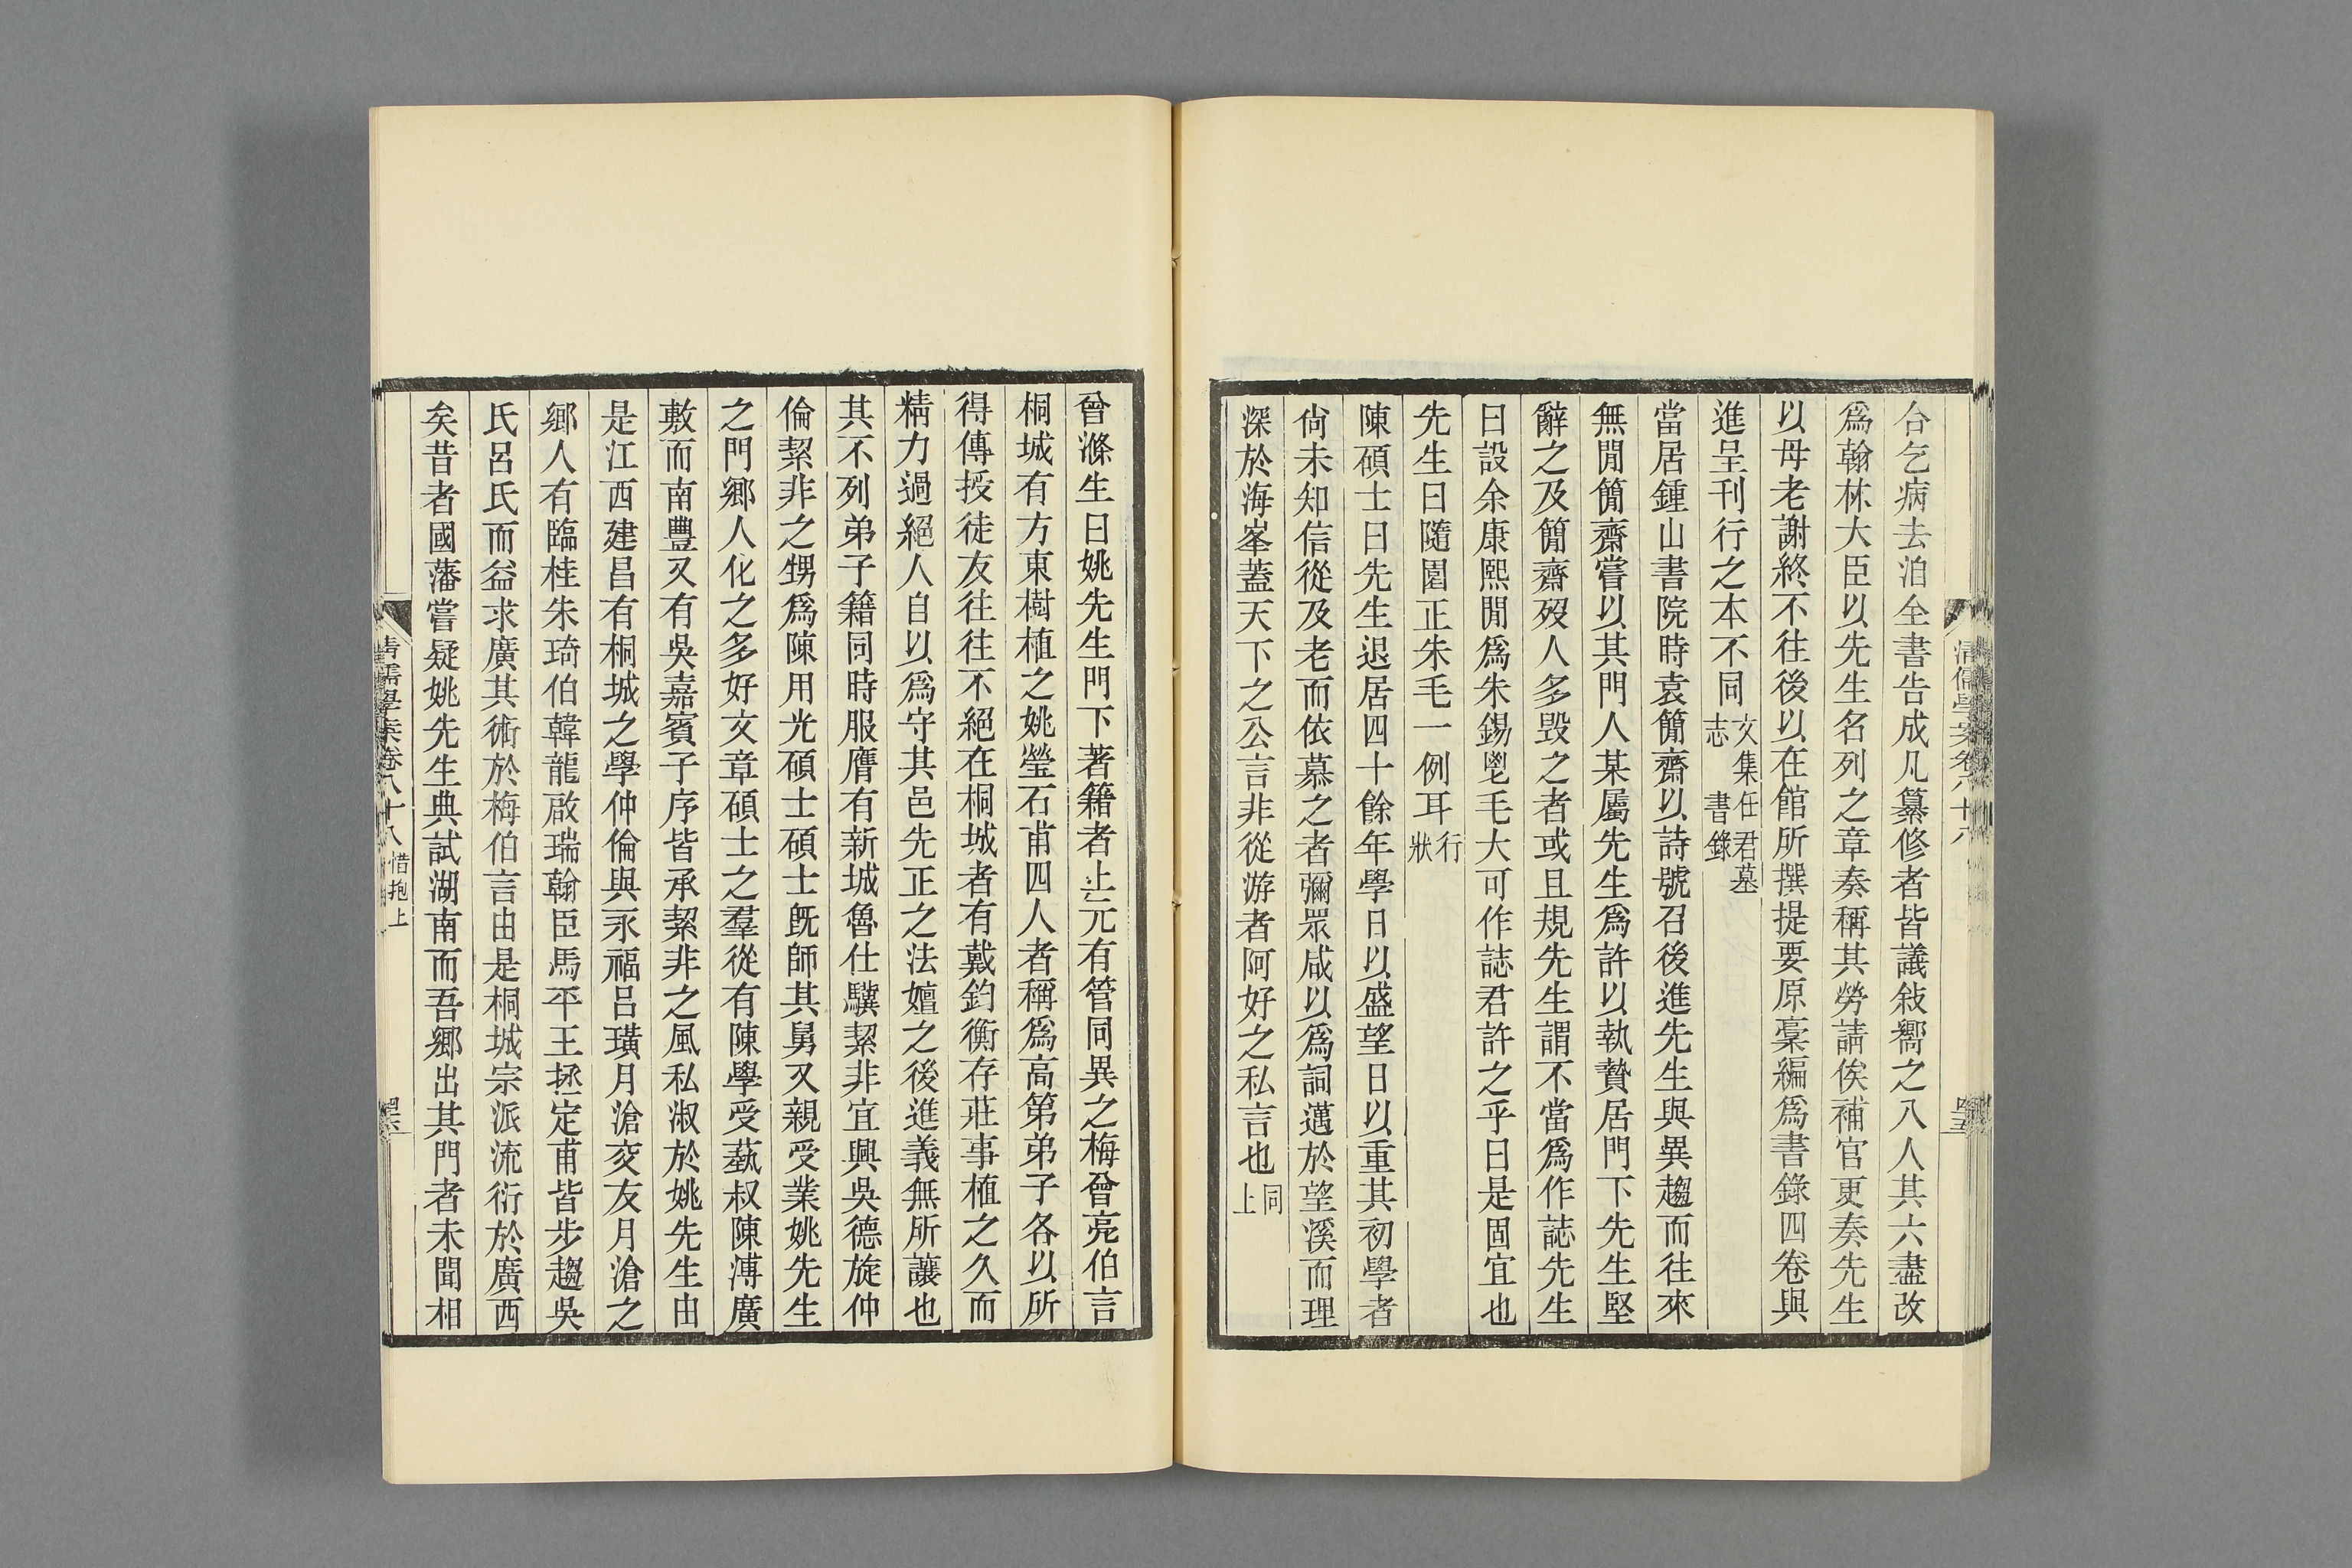 合乞病去洎全書告成凡纂修者皆議敍嚮之入人其六盡改
爲翰林大臣以先生名列之章奏稱其勞請俟補官更奏先生
以母老謝終不往後以在館所撰提要原稾編爲書錄四卷與
進呈刊行之本不同文集任君墓志 書錄
當居鍾山書院時袁簡齋以詩號召後進先生與異趨而往來
無閒簡齋嘗以其門人某屬先生爲許以執贄居門下先生堅
辭之及簡齋歿人多毀之者或且規先生謂不當爲作誌先生
曰設余康熙閒爲朱錫鬯毛大可作誌君許之乎曰是固宜也
先生曰隨園正朱毛一例耳行狀
陳碩士曰先生退居四十餘年學日以盛望日以重其初學者
尙未知信從及老而依慕之者彌眾咸以爲詞邁於望溪而理
深於海峯蓋天下之公言非從游者阿好之私言也同上
曾滌生曰姚先生門下著籍者上元有管同異之梅曾亮伯言
桐城有方東樹植之姚瑩石甫四人者稱爲高第弟子各以所
得傳授徒友往往不絕在桐城者有戴鈞衡存莊事植之久而
精力過絕人自以爲守其邑先正之法嬗之後進義無所讓也
其不列弟子籍同時服膺有新城魯仕驥絜非宜興吳德旋仲
倫絜非之甥爲陳用光碩士碩士旣師其舅又親受業姚先生
之門鄉人化之多好文章碩士之羣從有陳學受蓺叔陳溥廣
敷而南豐又有吳嘉賓子序皆承絜非之風私淑於姚先生由
是江西建昌有桐城之學仲倫與永福呂璜月滄交友月滄之
鄉人有臨桂朱琦伯韓龍啟瑞翰臣馬平王拯定甫皆步趨吳
氏呂氏而益求廣其術於梅伯言由是桐城宗派流衍於廣西
矣昔者國藩嘗疑姚先生典試湖南而吾鄉出其門者未聞相
清儒學案卷八十八 惜抱上